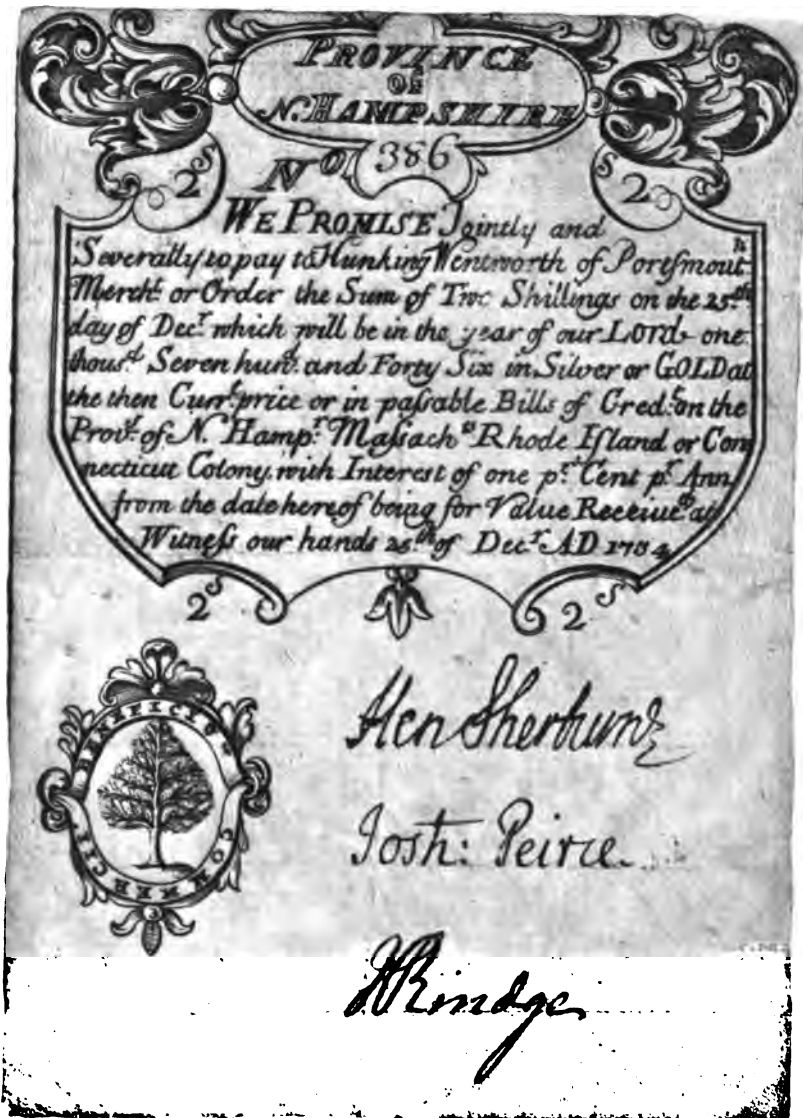 PROVINCE
OF
N. HAMPSHIRE
No 386
2s s2
WE PROMISE Jointly and
Severally to pay to Hunking Wentworth of Portsmouth
Mercht or Order the Sum of Two Shillings on the 25.th
day of Decr which will be in the year of our LORD one
thousd Seven hund. and Forty Six in Silver or GOLD at
the then Currt price or in passable Bills of Credt on the
Prove. of N. Hampr Massachts Rhode Island or Con
necticut Colony with Interest of one pr Cent pr Ann
from the date hereof being for Value Receiued as
Witness our hands 25.th of Decr AD 1734
2s 2s
BENEFICIUM
COMMERCII
Hen Sherburne
Josh: Peirce
J Rindge